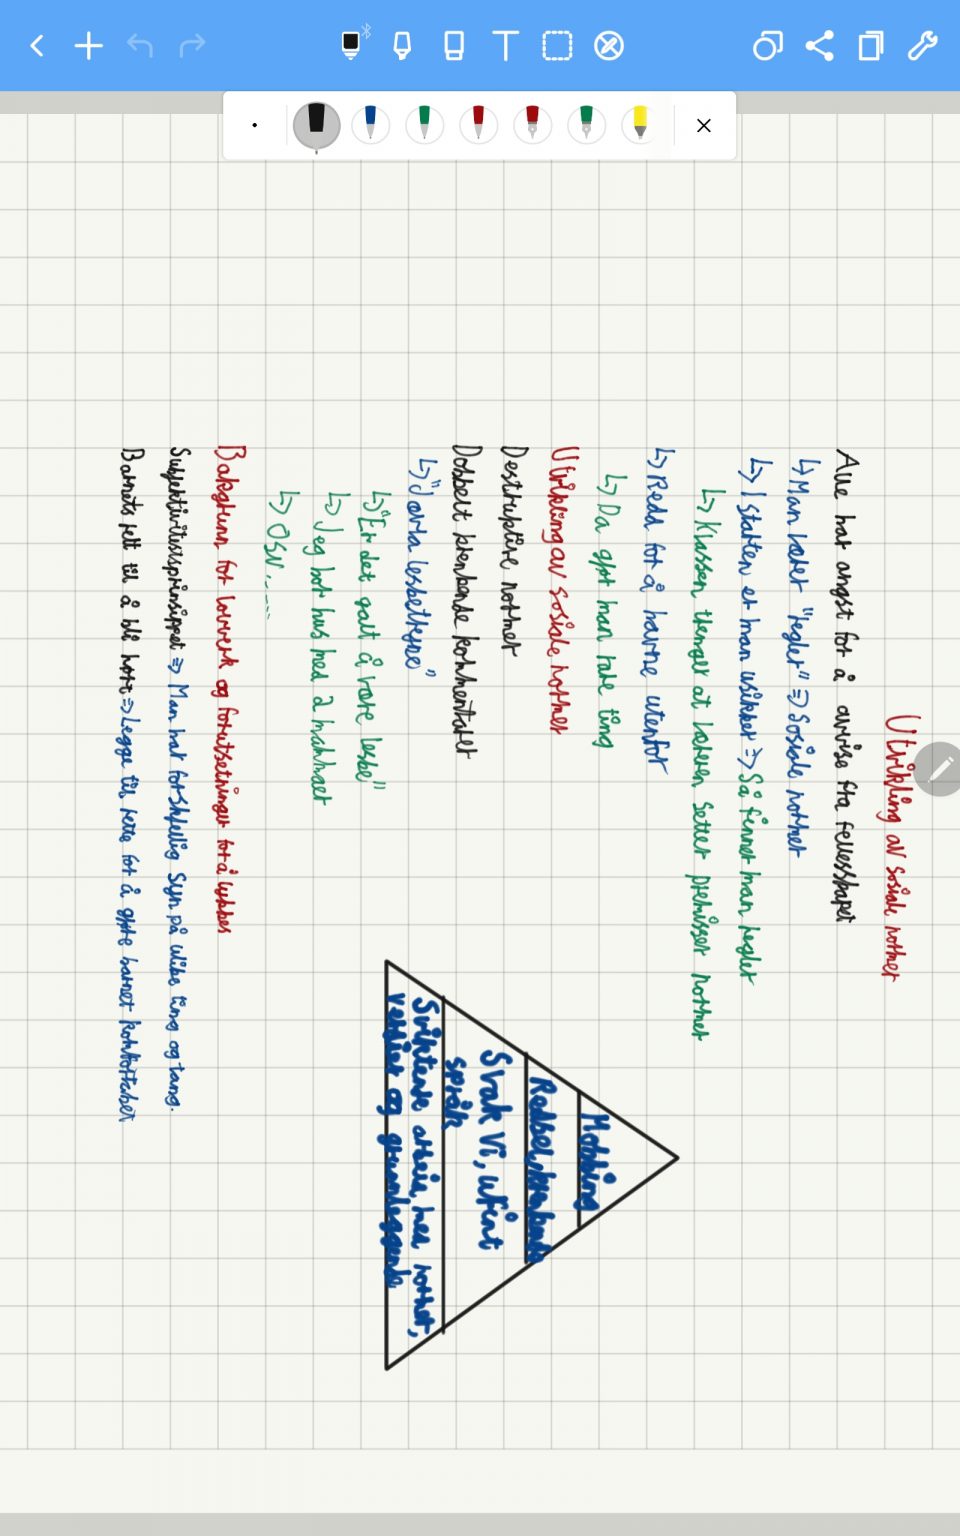 Utvikling av sosiale normer
Alle har angst for å avvise fra fellesskapet
↳ Man lærer "regler" => Sosiale normer
↳ I starten er man usikker => Så finner man regler
↳ Klassen trenger at læreren setter premisser normer
↳ Redd for å havne utenfor
↳ Da gjør man rare ting
Utvikling av sosiale normer
Destruktive normer
Dobbelt krenkende kommentarer
↳ "Jævla lesbetryne"
↳ "Er det galt å være lesbe"
↳ Jeg bor hus med 2 mammaer
↳ OSV.....
Bakgrunn for lovverk og forutsetninger for å lykkes
Subjektivitetsprinsippet => Man har forskjellig syn på ulike ting og tang.
Barnets rett til å bli hørt => Legge til rette for å gjøre barnet komfortabel
Mobbing
Redsel, krenkende
Svak vi, ufint
språk
Sviktende arbeid med normer,
verdier og grunnleggende
T